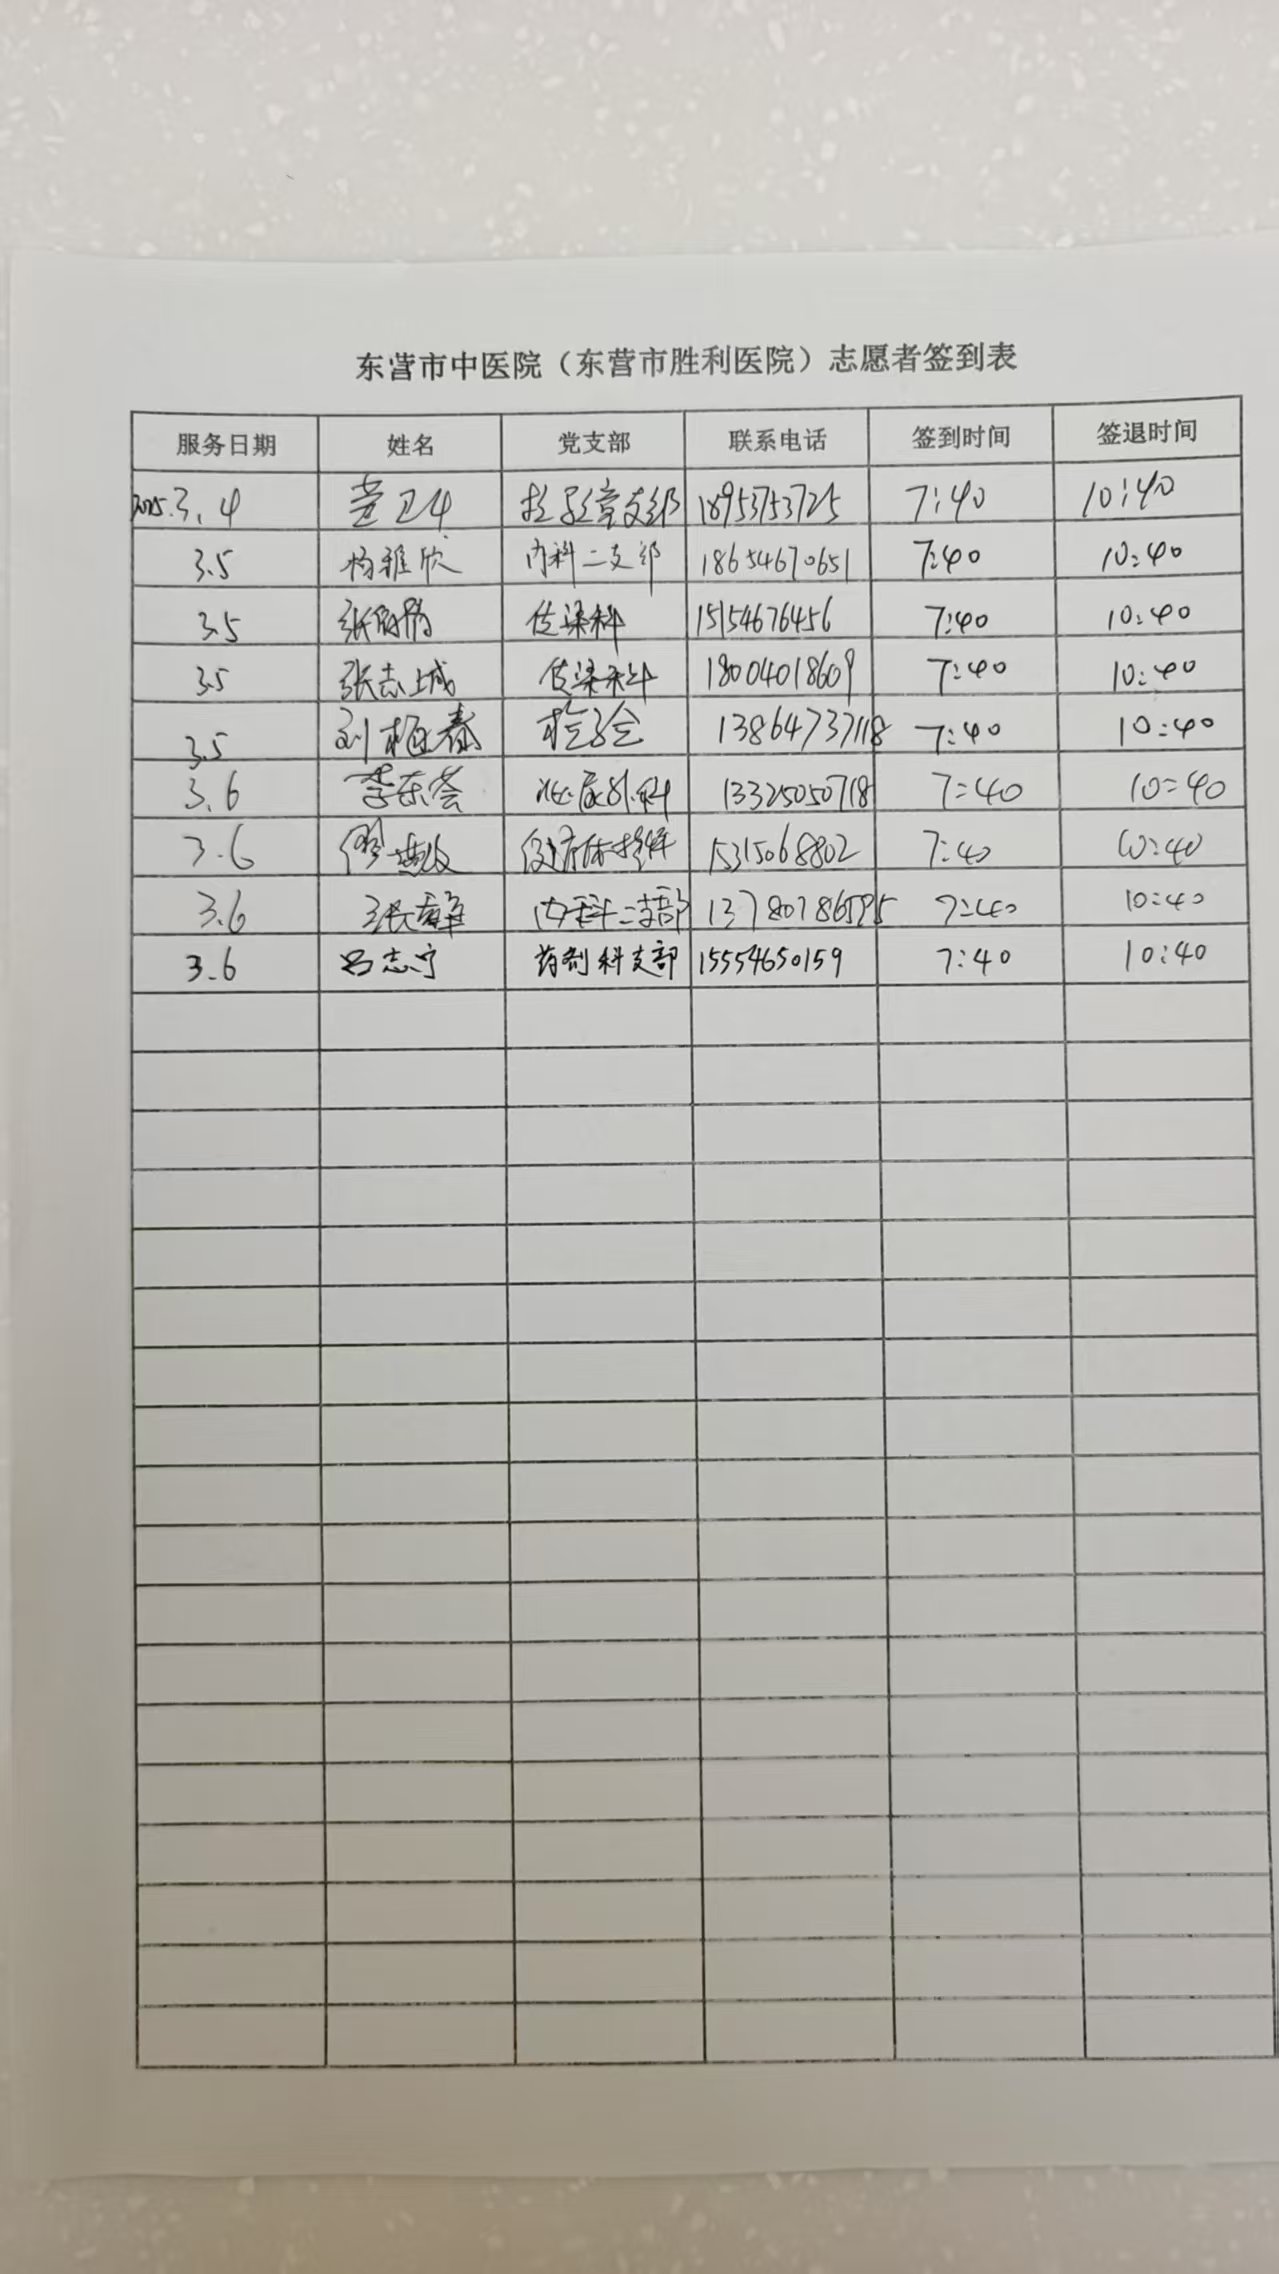 东营市中医院（东营市胜利医院）志愿者签到表
服务日期 姓名 党支部 联系电话 签到时间 签退时间
2025.3.4 18953753725 7:40 10:40
3.5 杨雅欣 内科二支部 18654670651 7:40 10:40
3.5 传染科 15154676456 7:40 10:40
3.5 张志城 传染科 18004018609 7:40 10:40
3.5 检验 13864737118 7:40 10:40
3.6 李东荟 泌尿外科 13325050718 7:40 10:40
3.6 15315068802 7:40 10:40
3.6 内科二支部 7:40 10:40
3.6 吕志宁 药剂科支部 15554650159 7:40 10:40